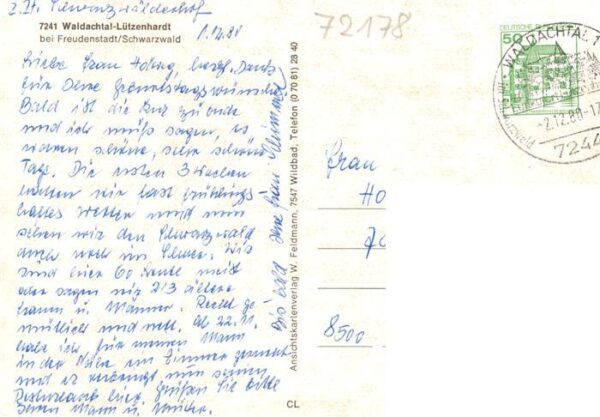 z. Zt. Schwarzwälderhof
7241 Waldachtal-Lützenhardt
bei Freudenstadt/Schwarzwald
1.12.80
Liebe Frau herzl. Dank
für Ihre Geburtstagswünsche
Bald ist die Kur zu ende
und ich muß sagen, es
waren schöne, sehr schöne
Tage. Die ersten 3 Wochen
hatten wir fast frühlings
haftes Wetter und nun
sehen wir den Schwarzwald
auch noch im Schnee. Wir
sind hier 60 Leute meist
oder sagen wir 2/3 ältere
Frauen u. Männer. Recht ge
mütlich und nett. Ab 22.11.
habe ich für meinen Mann
in der Nähe ein Zimmer gemietet
und er verbringt nun seinen
hier. Grüßen Sie bitte
Ihren Mann u. Mutter.
Bis bald Ihre Frau
Ansichtskartenverlag W. Feldmann, 7547 Wildbad, Telefon (0 70 81) 28 40
CL
72178
DEUTSCHE
50
WALDACHTAL 1
-2.12.80-17
7244
Frau
Ho
8500